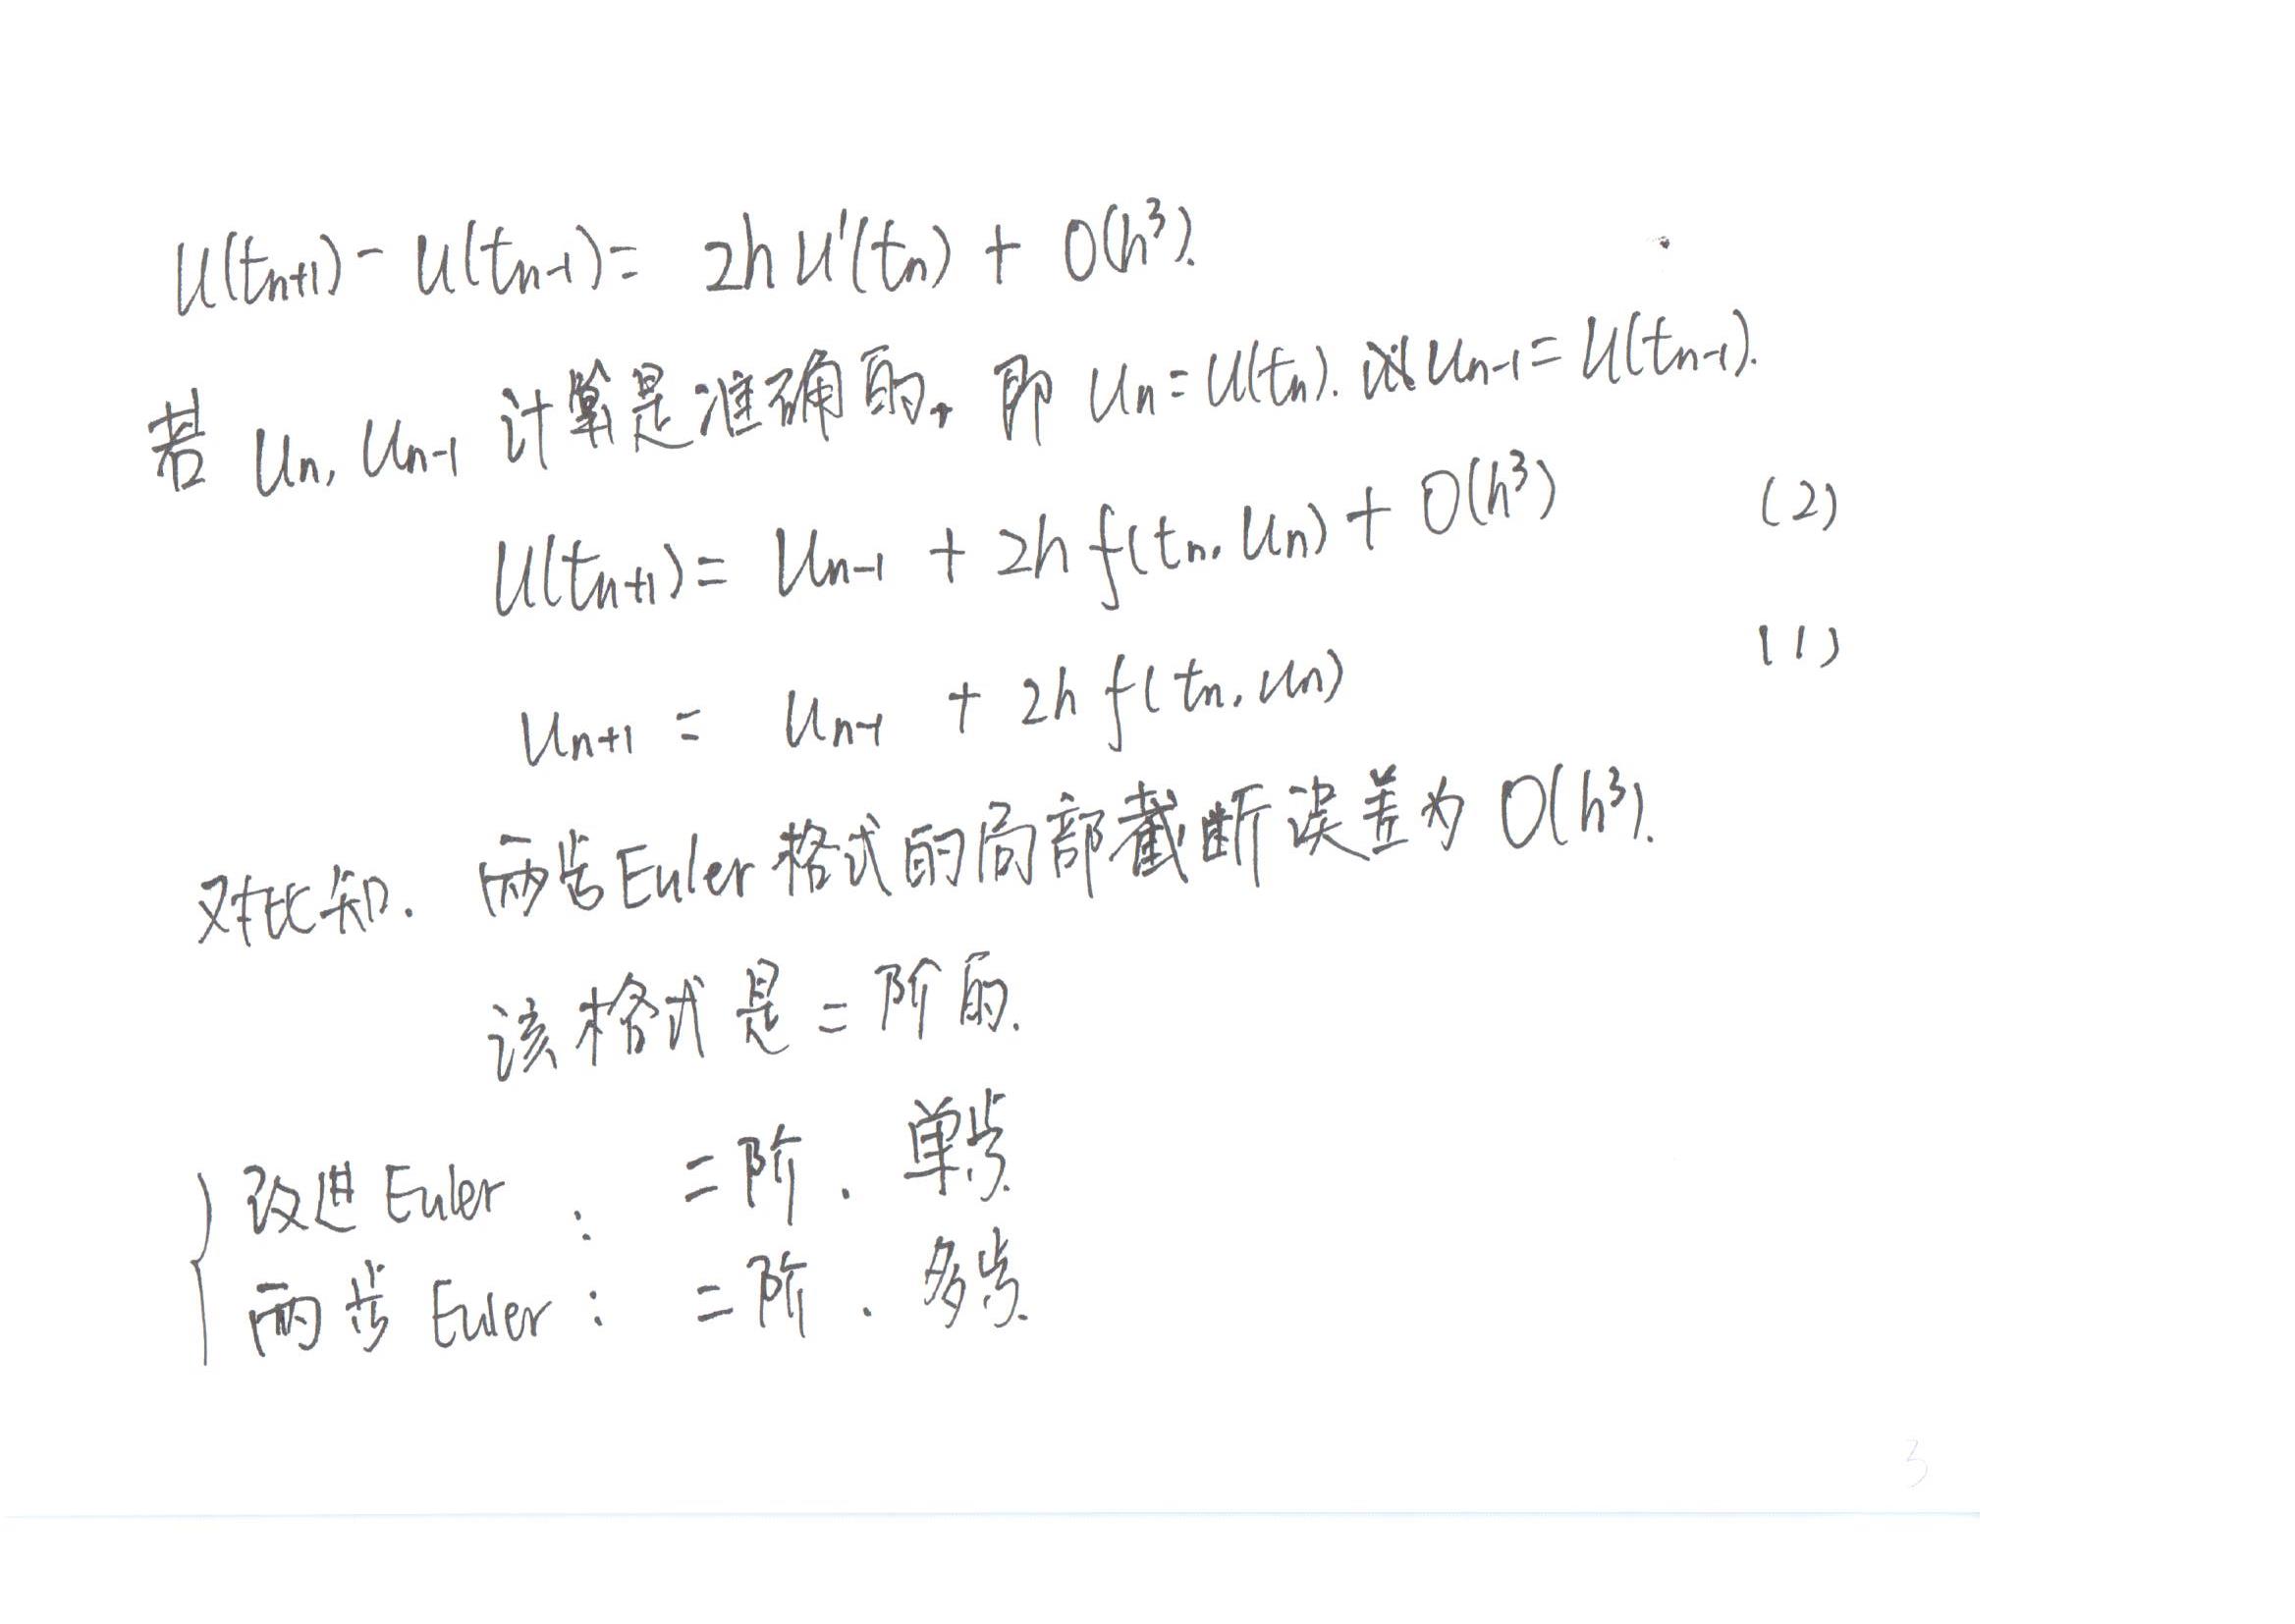 U(tn+1) - U(tn-1) = 2h U'(tn) + O(h³).
若 Un, Un-1 计算是准确的, 即 Un = U(tn). Un-1 = U(tn-1).
U(tn+1) = Un-1 + 2h f(tn, Un) + O(h³) (2)
Un+1 = Un-1 + 2h f(tn, Un) (1)
对比知. 两步Euler格式的局部截断误差为 O(h³).
该格式是二阶的.
改进Euler : 二阶. 单步.
两步Euler : 二阶. 多步.
3